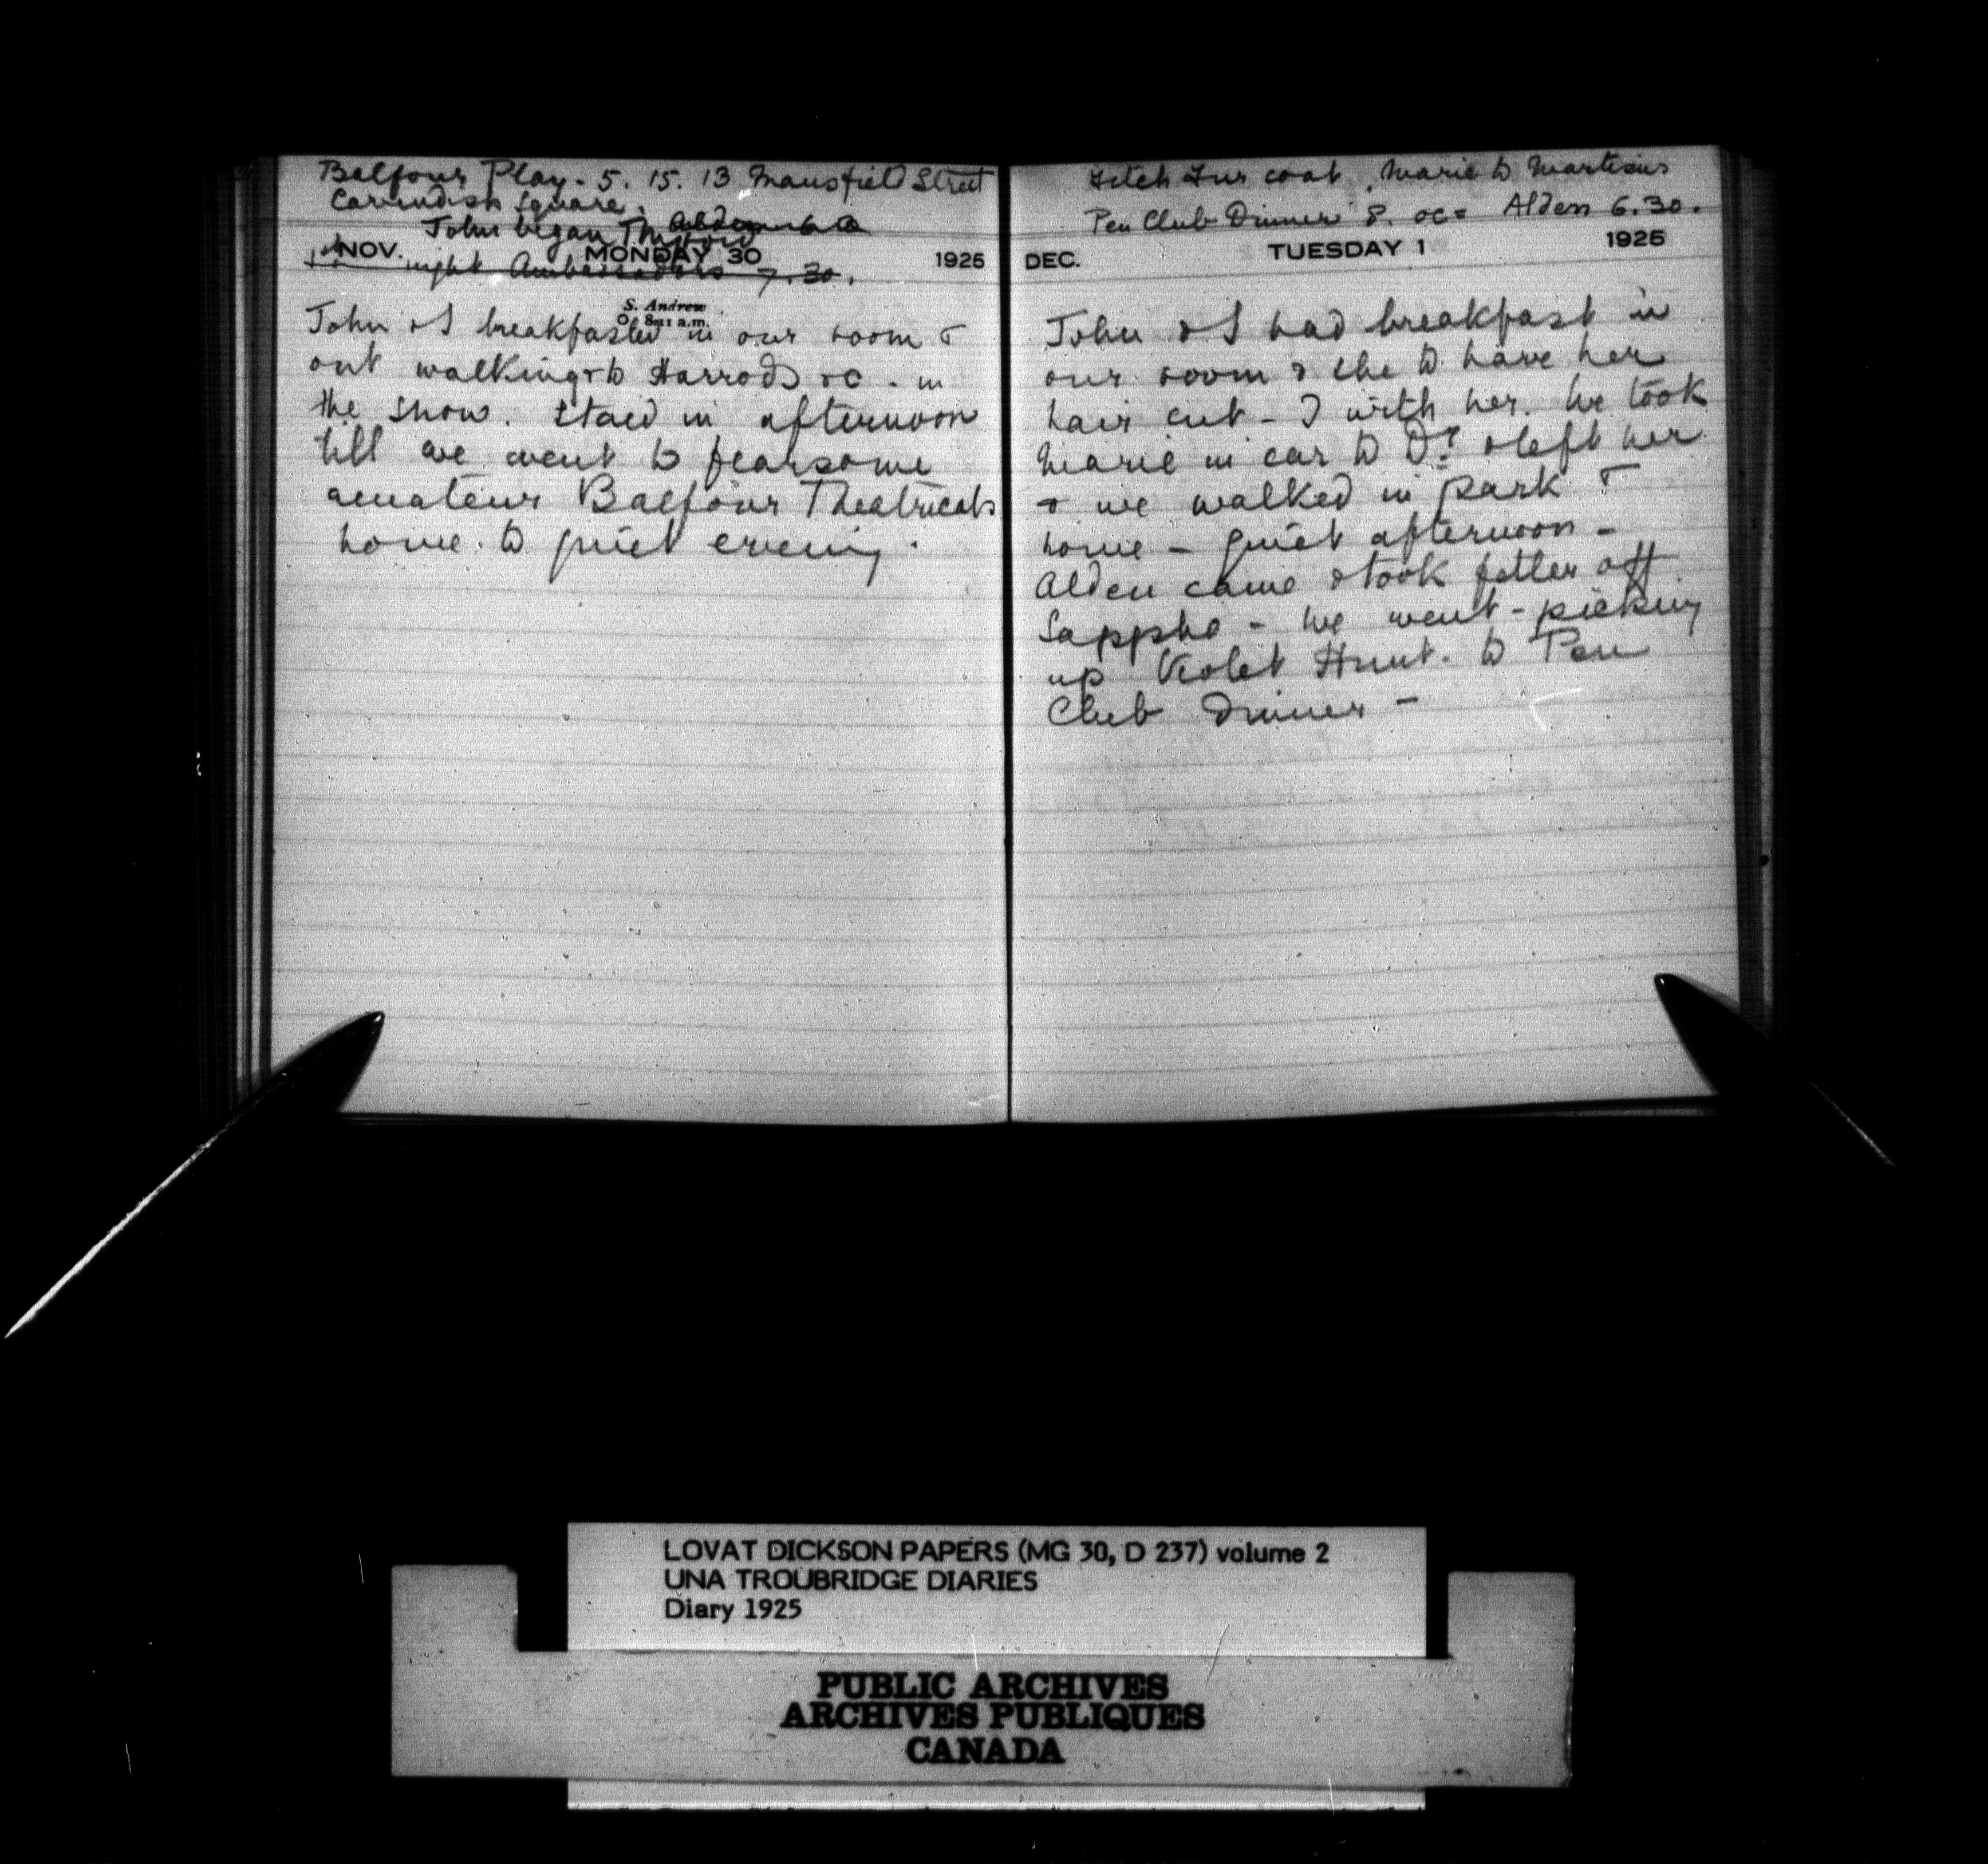 Balfour Play - 5. 15. 13 Mansfield Street
Cavendish Square.
John began
NOV. MONDAY 30 1925
1st night Ambassadors 7.30.
S. Andrew
John & I breakfasted in our room &
out walking & to Harrods &c. in
the snow. Staid in afternoon
till we went to fearsome
amateur Balfour Theatricals
home. to quiet evening.
Fetch Fur coat, Marie to
Pen Club Dinner 8. oc= Alden 6.30.
DEC. TUESDAY 1 1925
John & I had breakfast in
our room & she to have her
hair cut - I with her. We took
Marie in car to Dr & left her
& we walked in park &
home - quiet afternoon -
Alden came & took fetter off
Sappho - We went - picking
up Violet Hunt. to Pen
Club Dinner -
LOVAT DICKSON PAPERS (MG 30, D 237) volume 2
UNA TROUBRIDGE DIARIES
Diary 1925
PUBLIC ARCHIVES
ARCHIVES PUBLIQUES
CANADA